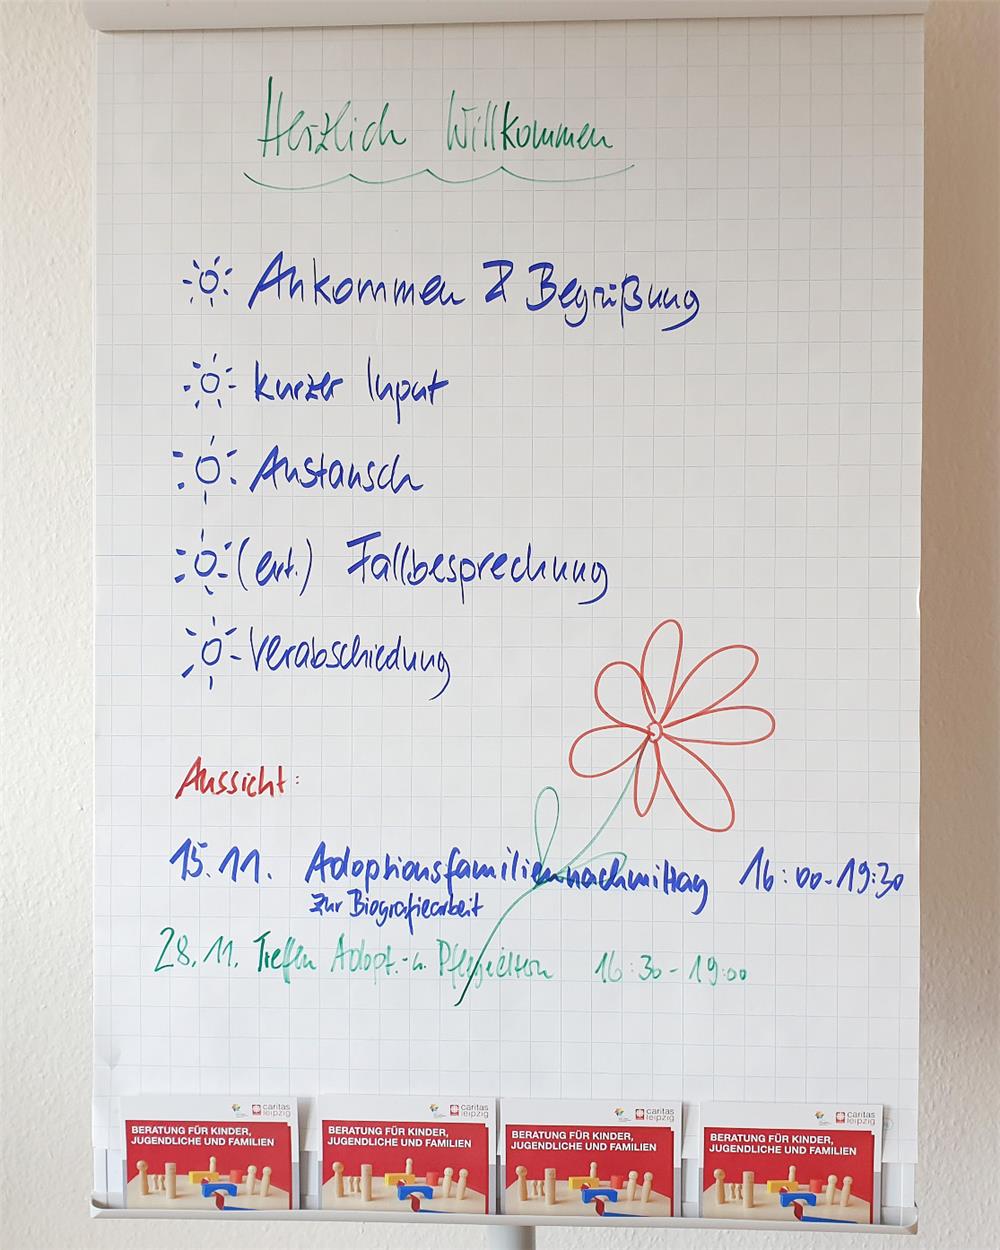 Herzlich Willkommen
Ankommen & Begrüßung
kurzer Input
Austausch
(evt.) Fallbesprechung
Verabschiedung
Aussicht:
15.11. Adoptionsfamiliennachmittag 16:00-19:30
zur Biografiearbeit
28.11. Treffen Adopt.- u. Pflegeeltern 16:30-19:00
caritas
leipzig
BERATUNG FÜR KINDER,
JUGENDLICHE UND FAMILIEN
caritas
leipzig
BERATUNG FÜR KINDER,
JUGENDLICHE UND FAMILIEN
caritas
leipzig
BERATUNG FÜR KINDER,
JUGENDLICHE UND FAMILIEN
caritas
leipzig
BERATUNG FÜR KINDER,
JUGENDLICHE UND FAMILIEN